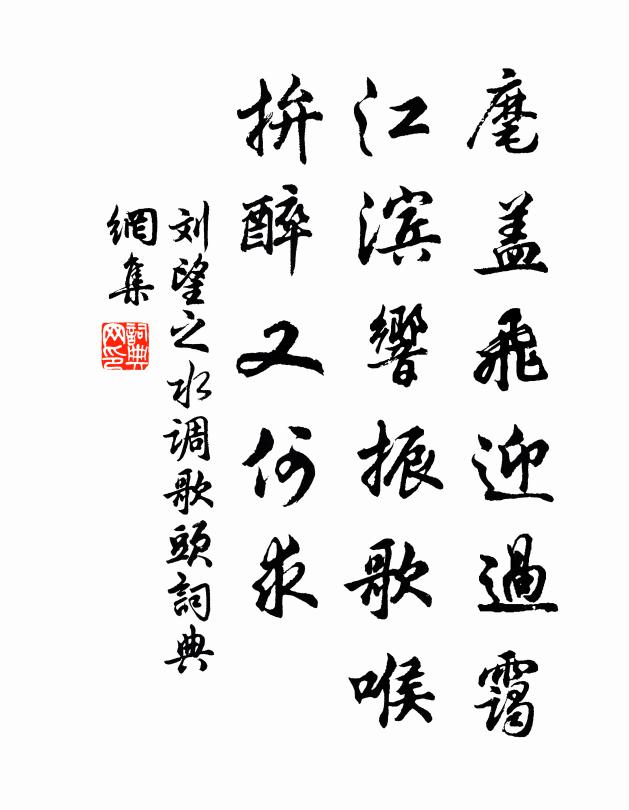 麾盖飛迎過靄
江滨響振歌喉
拚醉又何求
刘望之水调歌頭詞典
網集
詞典
网印